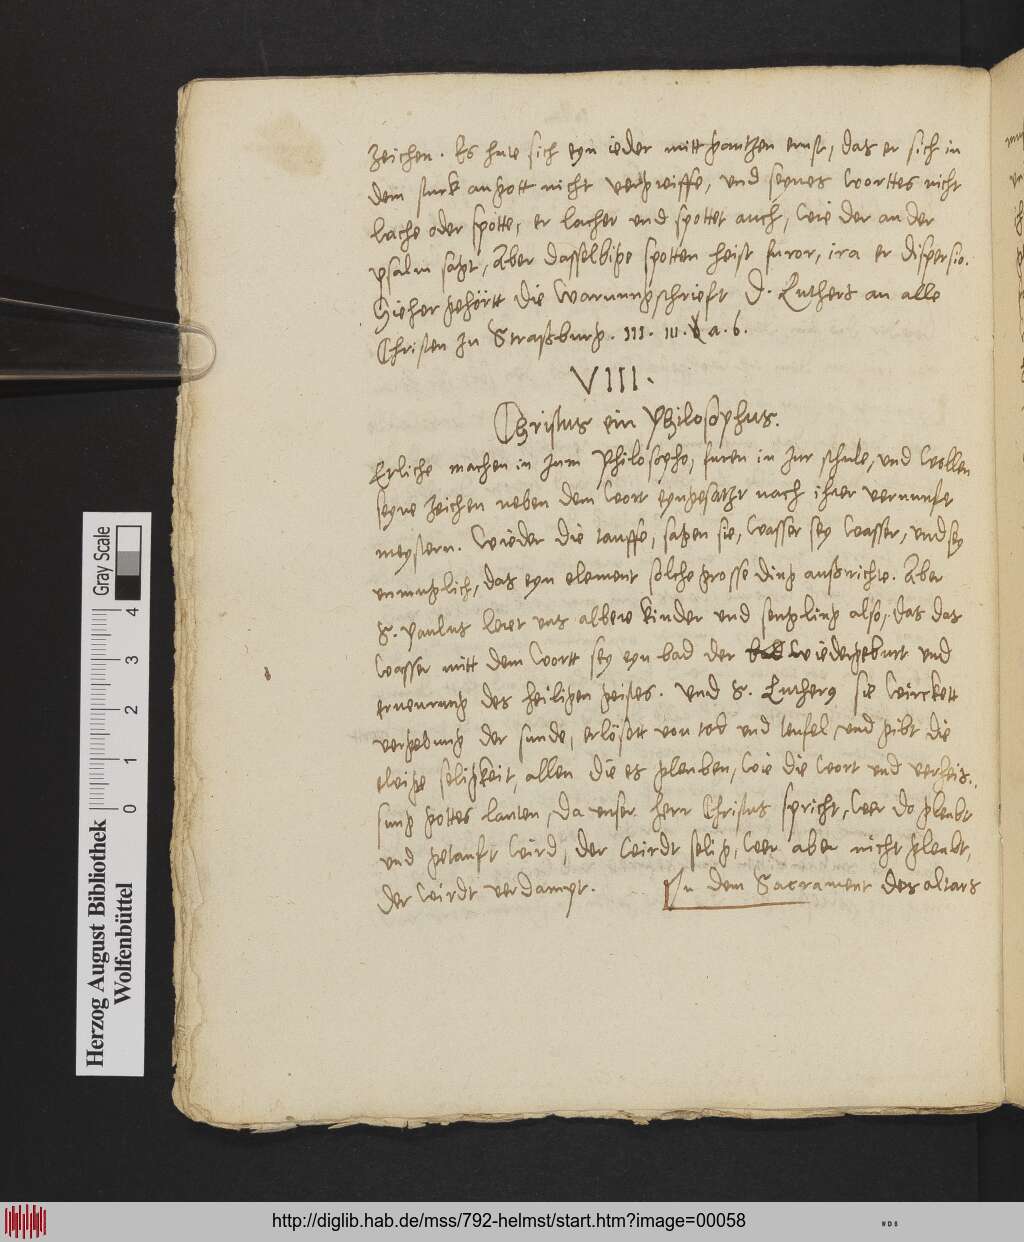 zeichen. Es hute sich eyn ieder mitt gantzen ernst, das er sich in
dem stuck an gott nicht vergreiffe, und seynes worttes nicht
lache oder spotte, er lachet und spottet auch, wie der ander
psalm sagt, Aber dasselbige spotten heist furor, ira et dispersio.
Hieher gehört die Warnungschrieft D. Luthers an alle
Christen zu Straßburg. III. III. a. b.
VIII.
Christus ein Philosophus.
Etliche machen in zum Philosopho, furen in zur schule, und wollen
seyne zeichen neben dem wort eyngesatzt nach ihrer vernunft
meystern. Wieder die tauffe, sagen sie, wasser sey wasser, und sey
unmuglich, das eyn element solche grosse ding außrichte. Aber
S. Paulus leret uns albere kinder und seugling also, das das
wasser mitt dem wortt sey eyn bad der wiedergeburt und
erneurung des heiligen geistes. Und S. Lutherus sie wirckett
vergebung der sunde, erlösett von tod und teufel und gibt die
ewige seligkeit, allen die es gleuben, wie die wort und verheis-
sung gottes lauten, da unser herr Christus spricht, wer do gleubt
und getauft wird, der wirdt selig, wer aber nicht gleubt,
der wirdt verdampt. In dem Sacrament des altars
Herzog August Bibliothek
Wolfenbüttel
0 1 2 3 4
Gray Scale
http://diglib.hab.de/mss/792-helmst/start.htm?image=00058